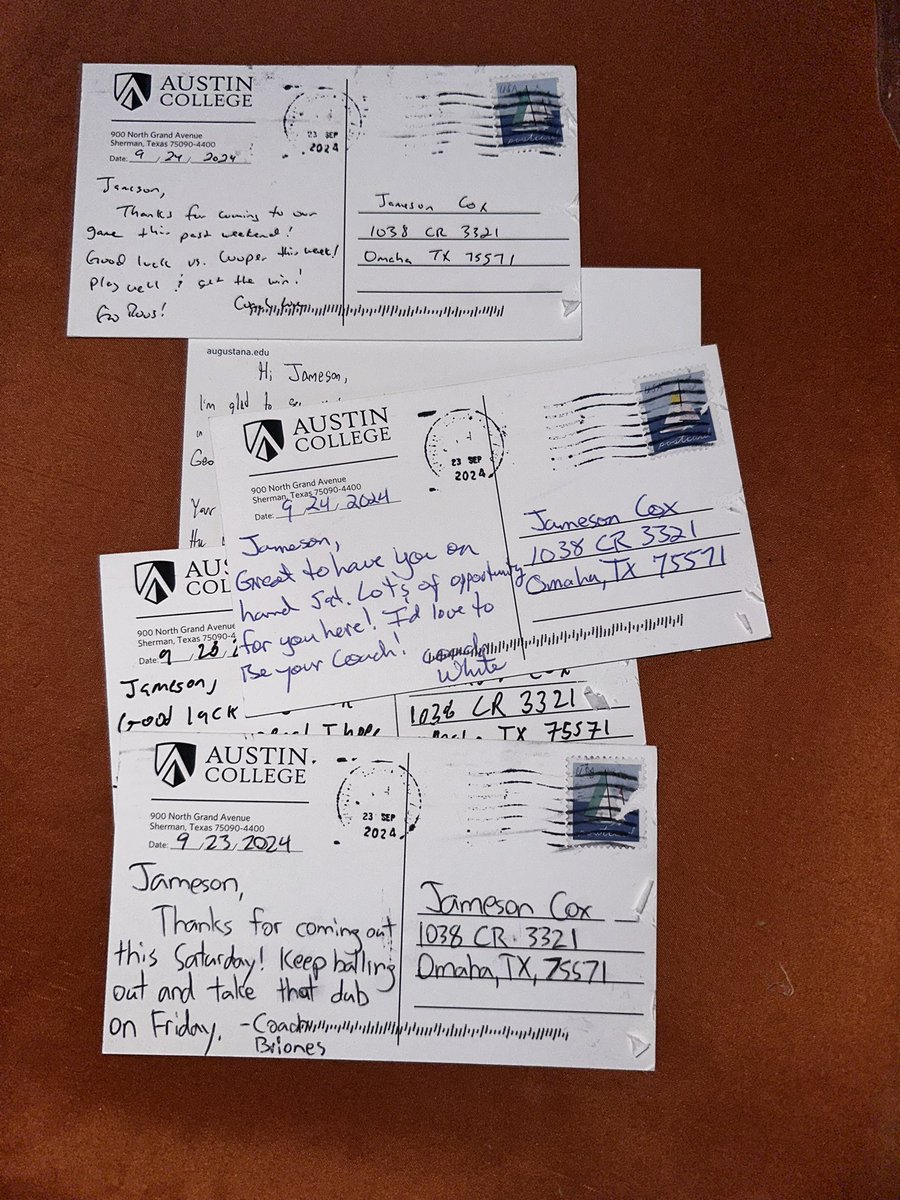 AUSTIN
COLLEGE
900 North Grand Avenue
Sherman, Texas 75090-4400
Date: 9, 24, 2024
Jameson,
Thanks for coming to our
game this past weekend!
Good luck vs. Cooper this week!
Play well & get the win!
Go Roos!
Coach
23 SEP
2024
USA
postcard
Jameson Cox
1038 CR 3321
Omaha TX 75571
augustana.edu
Hi Jameson,
I'm glad to
Geo
Your
AUSTIN
COLLEGE
900 North Grand Avenue
Sherman, Texas 75090-4400
Date: 9, 24, 2024
Jameson,
Great to have you on
hand Sat. Lots of opportunity
for you here! I'd love to
Be your Coach!
Coach
White
23 SEP
2024
USA
postcard
Jameson Cox
1038 CR 3321
Omaha, TX 75571
AUS
CO
900 North Grand A
Sherman, Texas 75090-4
Date: 9
Jameson,
Good luck
I hope
Cox
1038 CR 3321
TX 75571
AUSTIN
COLLEGE
900 North Grand Avenue
Sherman, Texas 75090-4400
Date: 9, 23, 2024
Jameson,
Thanks for coming out
this Saturday! Keep balling
out and take that dub
on Friday. -Coach
Briones
23 SEP
2024
USA
Jameson Cox
1038 CR. 3321
Omaha, TX, 75571